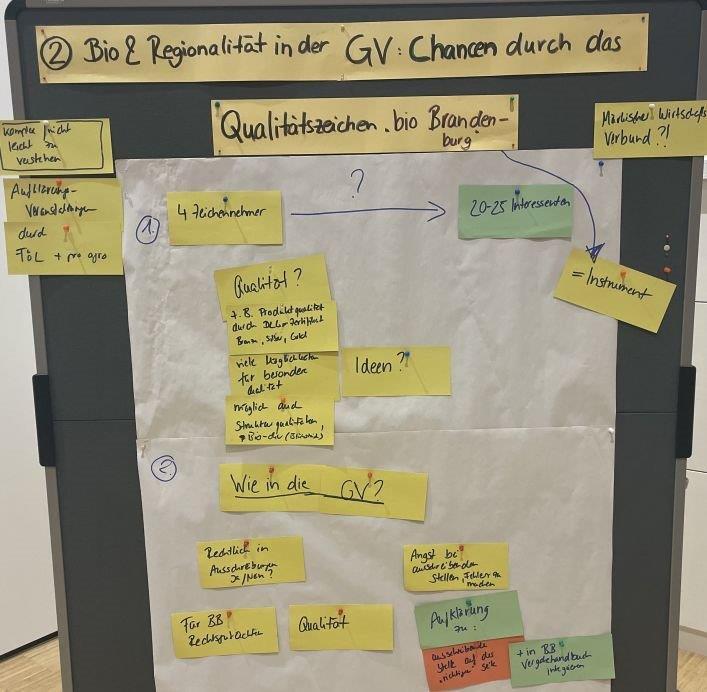 ② Bio & Regionalität in der GV: Chancen durch das
Qualitätszeichen. bio Branden-
burg
komplex / nicht
leicht zu
verstehen
Aufklärungs-
Veranstaltungen
durch
FöL + pro agro
Märkischer Wirtschafts
Verbund ?!
1.
4 Zeichennehmer
?
20-25 Interessenten
= Instrument
Qualität?
z.B. Produktqualität
durch DLG-zertifiziert
Bronze, Silber, Gold
viele Möglichkeiten
für besondere
Qualität
Ideen?
möglich auch
Strukturqualitäten,
2.
Wie in die GV?
Rechtlich in
Ausschreibungen
Ja/Nein?
Angst bei
ausschreibenden
Stellen, Fehler zu
machen
Für BB
Rechtsgutachten
Qualität
Aufklärung
zu:
ausschreibende
Stelle auf der
richtigen Seite
+ in BB
Vergabehandbuch
integrieren